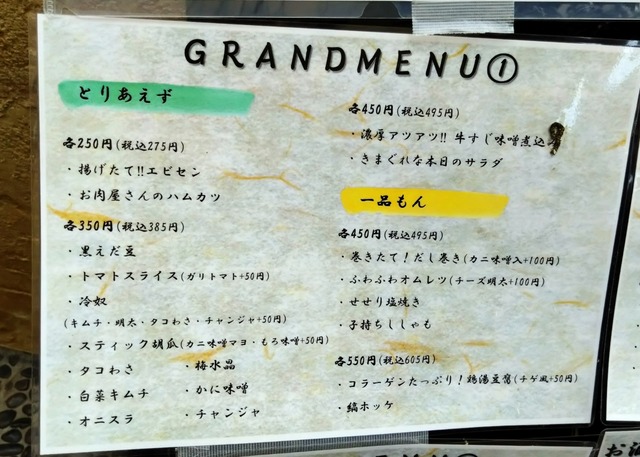 GRANDMENU①
とりあえず
各250円(税込275円)
・揚げたて!!エビセン
・お肉屋さんのハムカツ
各350円(税込385円)
・黒えだ豆
・トマトスライス(ガリトマト+50円)
・冷奴
(キムチ・明太・タコわさ・チャンジャ+50円)
・スティック胡瓜(カニ味噌マヨ・もろ味噌+50円)
・タコわさ
・白菜キムチ
・オニスラ
・梅水晶
・かに味噌
・チャンジャ
各450円(税込495円)
・濃厚アツアツ!! 牛すじ味噌煮込
・きまぐれな本日のサラダ
一品もん
各450円(税込495円)
・巻きたて!だし巻き(カニ味噌入+100円)
・ふわふわオムレツ(チーズ明太+100円)
・せせり塩焼き
・子持ちししゃも
各550円(税込605円)
・コラーゲンたっぷり!鶏湯豆腐(チゲ風+50円)
・縞ホッケ